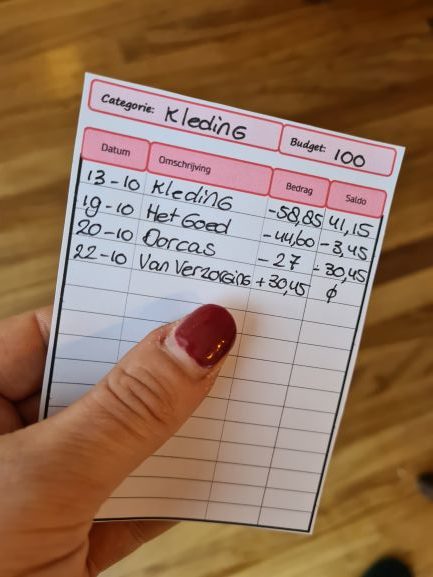 Categorie: Kleding Budget: 100
Datum Omschrijving Bedrag Saldo
13-10 Kleding -58,85 41,15
19-10 Het Goed -44,60 -3,45
20-10 Dorcas -27 -30,45
22-10 Van Verzorging +30,45 ∅